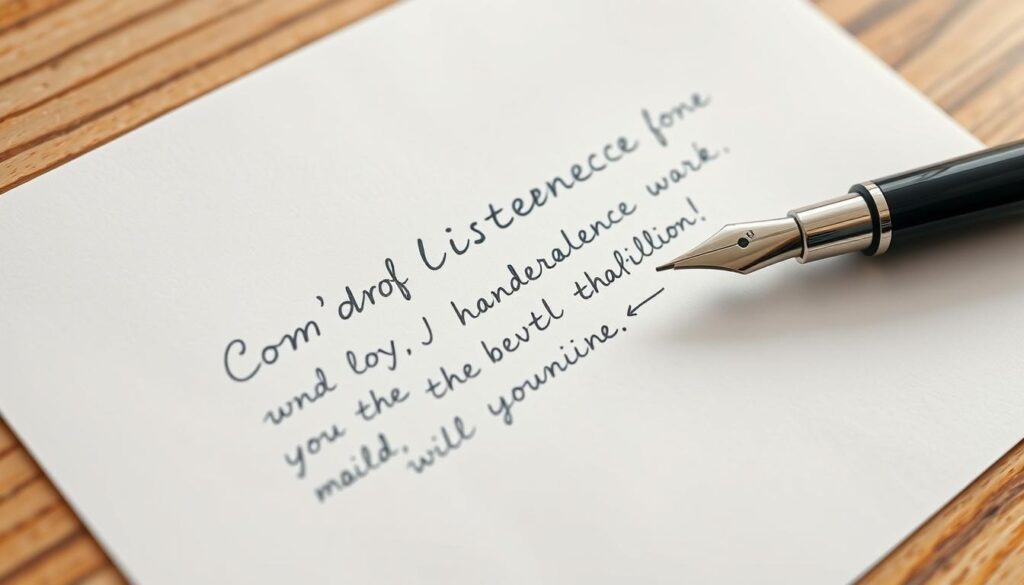 Com' drof Listernecce fone
wnd loy, J handeralence wark.
you the the bevtl thafillion!
maild, will youniine. ←